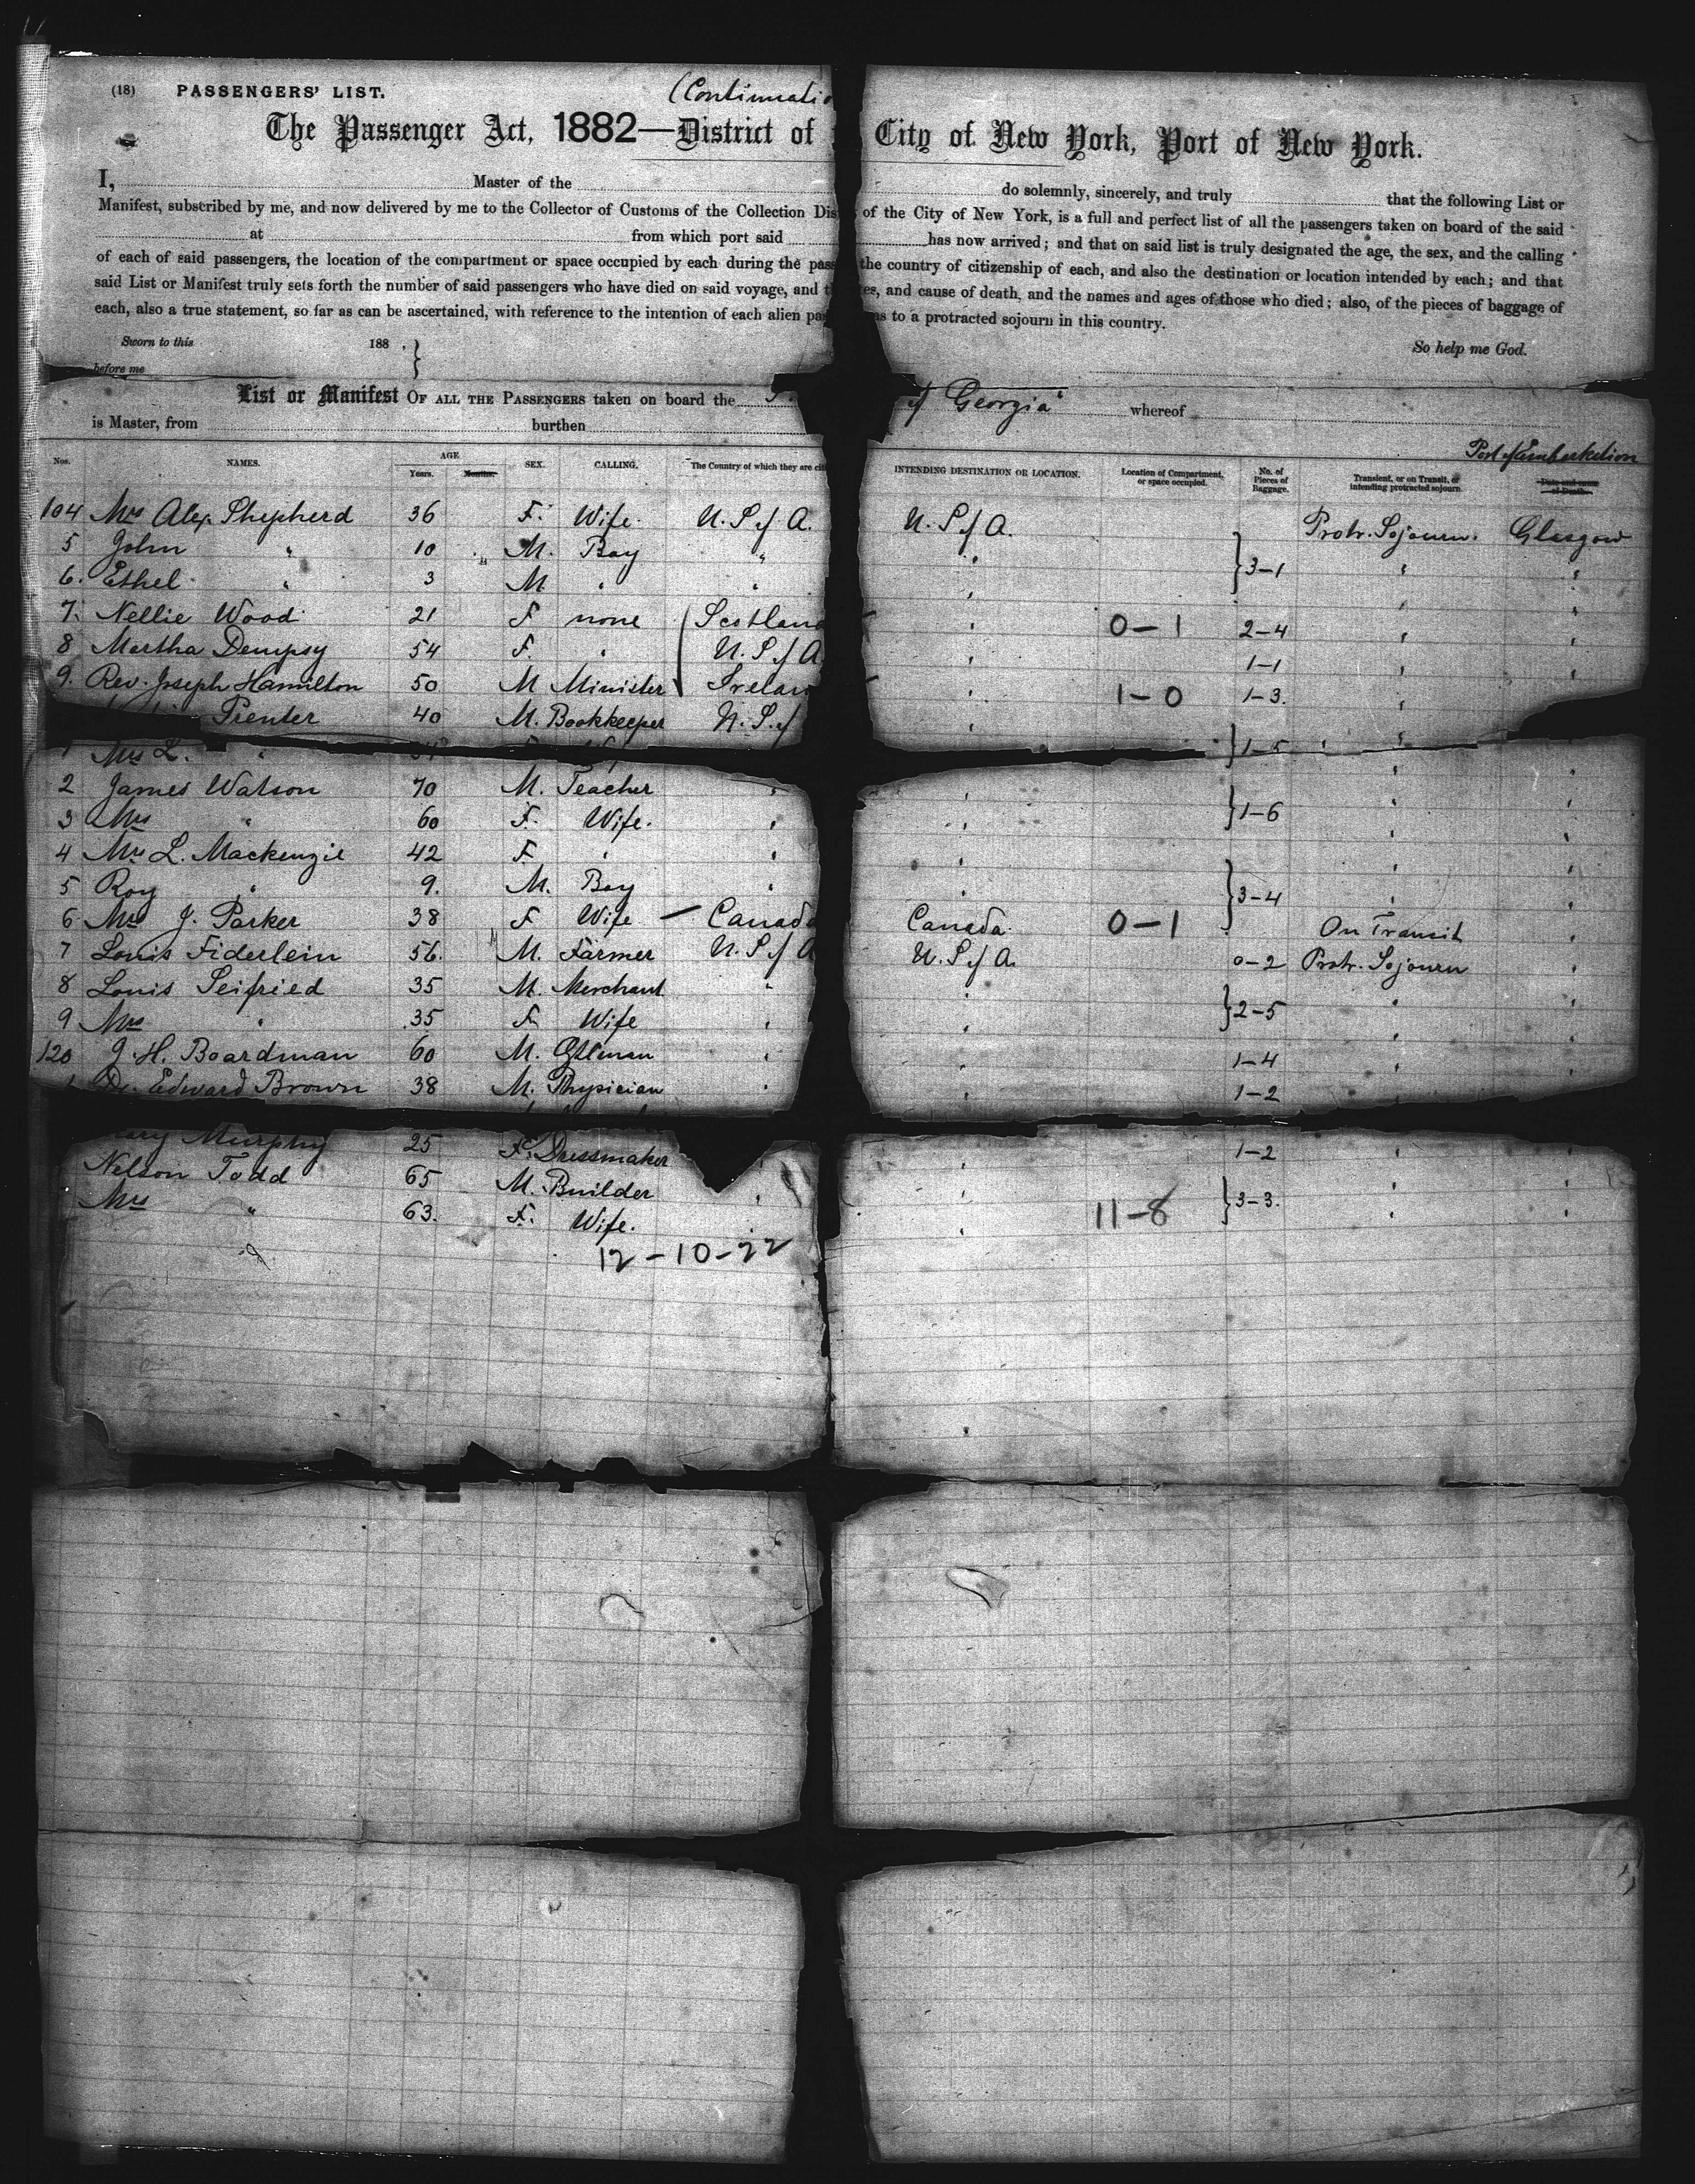 (18) PASSENGERS' LIST. (Continuatio
The Passenger Act, 1882—District of City of New York, Port of New York.
I, Master of the do solemnly, sincerely, and truly that the following List or
Manifest, subscribed by me, and now delivered by me to the Collector of Customs of the Collection Dis of the City of New York, is a full and perfect list of all the passengers taken on board of the said
at from which port said has now arrived; and that on said list is truly designated the age, the sex, and the calling
of each of said passengers, the location of the compartment or space occupied by each during the pass the country of citizenship of each, and also the destination or location intended by each; and that
said List or Manifest truly sets forth the number of said passengers who have died on said voyage, and t es, and cause of death, and the names and ages of those who died; also, of the pieces of baggage of
each, also a true statement, so far as can be ascertained, with reference to the intention of each alien pas as to a protracted sojourn in this country.
Sworn to this 188 , So help me God.
before me
List or Manifest OF ALL THE PASSENGERS taken on board the S. of Georgia" whereof
is Master, from burthen
Port of Embarkation
Nos. NAMES. AGE Years. Months. SEX. CALLING. The Country of which they are cit INTENDING DESTINATION OR LOCATION. Location of Compartment, or space occupied. No. of Pieces of Baggage. Transient, or on Transit, or intending protracted sojourn. Date and cause of Death.
104 Mrs Alex. Shepherd 36 F. Wife. U. S. of A. U. S. of A. Protr. Sojourn. Glasgow
5 John " 10 M. Boy " " } 3-1 " "
6. Ethel " 3 M " " " " "
7. Nellie Wood 21 F none Scotland " 0-1 2-4 " "
8 Martha Dempsy 54 F. " U. S. of A " 1-1 " "
9. Rev. Joseph Hamilton 50 M Minister Irelan " 1-0 1-3. "
Prenter 40 M. Bookkeeper U. S. of "
1 Mrs L. " } 1-5 " "
2 James Watson 70 M. Teacher " " " "
3 Mrs " 60 F. Wife. " " } 1-6 " "
4 Mrs L. Mackenzie 42 F " " " " "
5 Roy " 9. M. Boy " " } 3-4 " "
6 Mrs J. Parker 38 F Wife — Canada Canada. 0-1 On Transit "
7 Louis Fiderlein 56. M. Farmer U. S. of A U. S. of A. 0-2 Protr. Sojourn "
8 Louis Seifried 35 M. Merchant " " } 2-5 " "
9 Mrs " 35 F. Wife " " " "
120 J. H. Boardman 60 M. Gtleman " " 1-4 " "
1 Dr. Edward Brown 38 M. Physician " " 1-2 " "
ary Murphy 25 F. Dressmaker " " 1-2 " "
Nelson Todd 65 M. Builder " " } 3-3. " "
Mrs " 63. F. Wife. " 11-8 " "
12-10-22